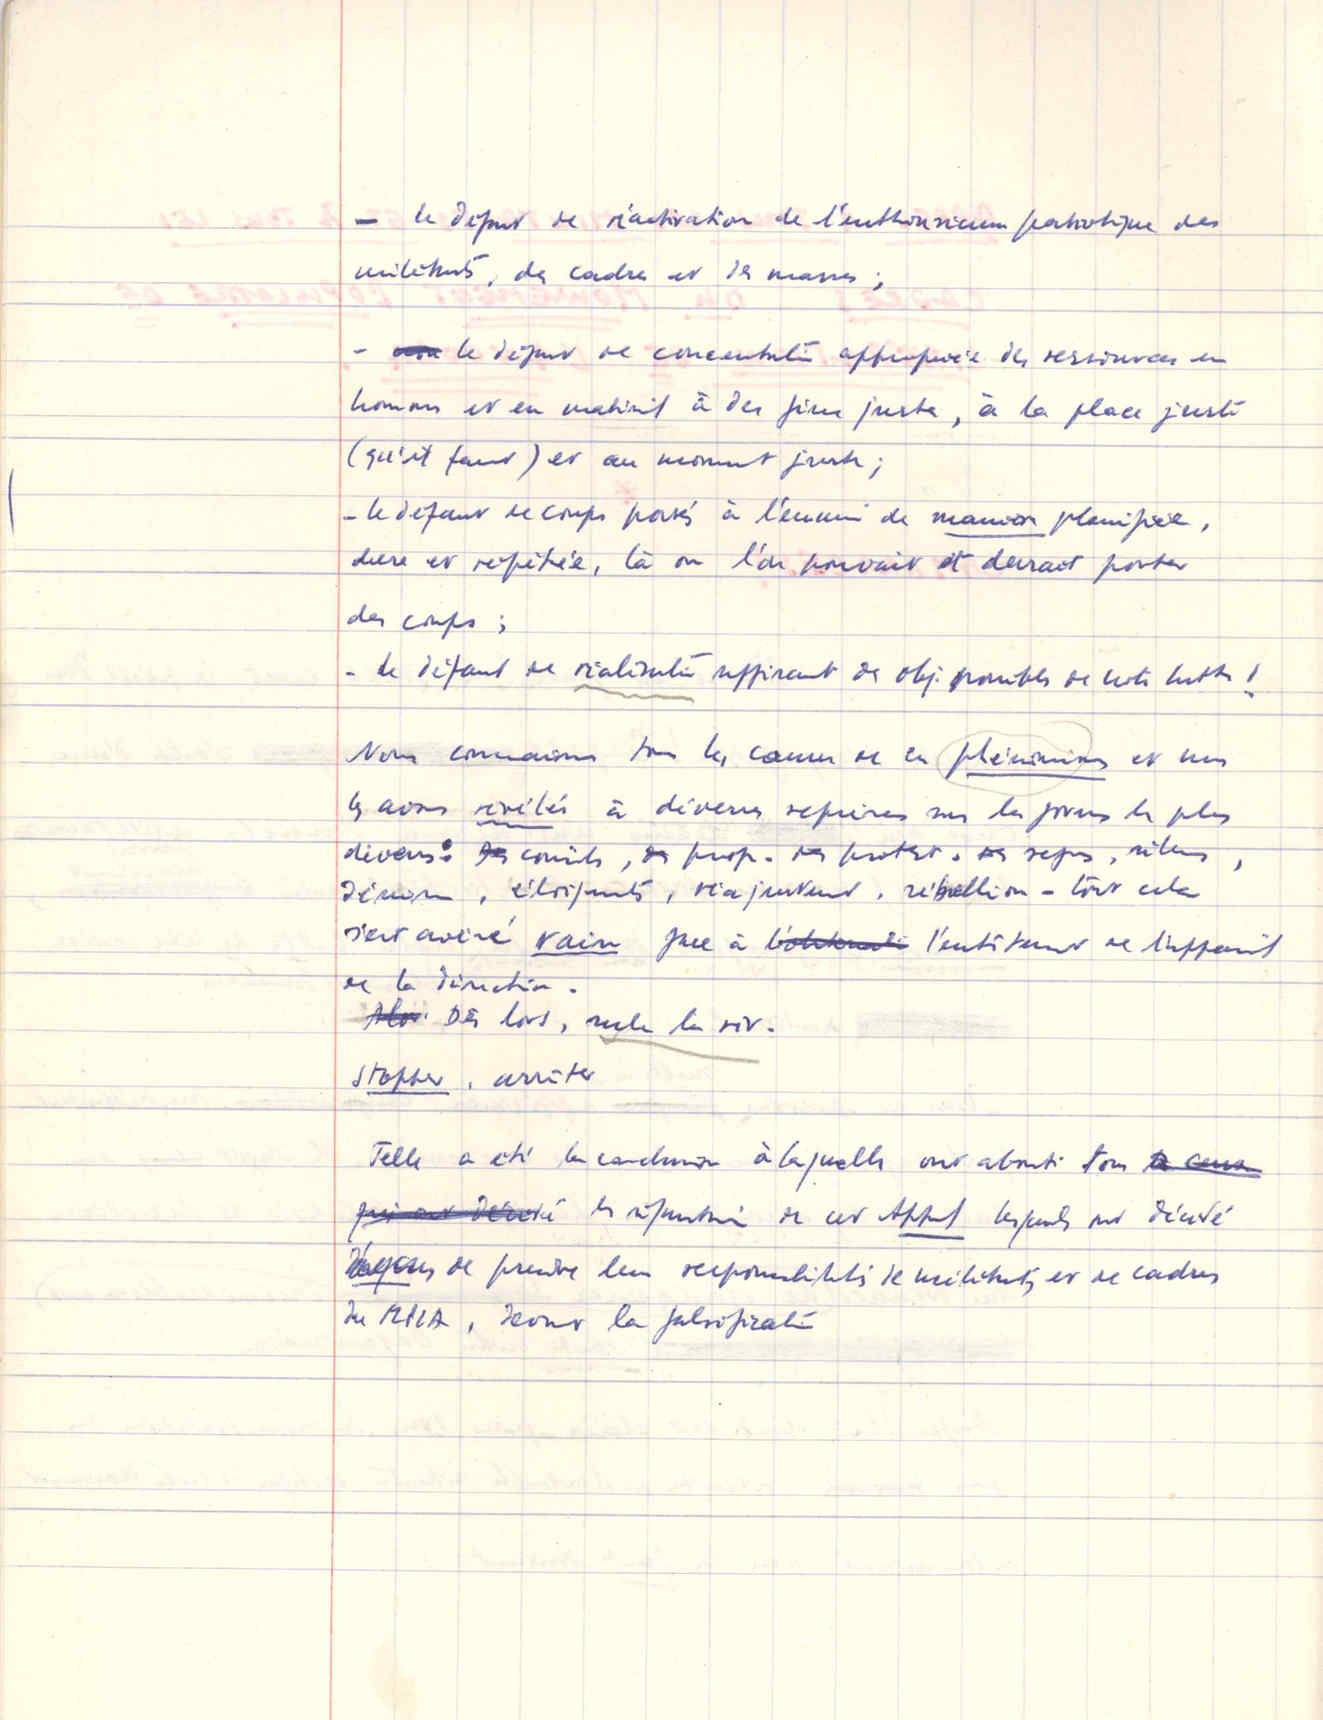 - le défaut de réactivation de l'enthousiasme patriotique des
militants, des cadres et des masses ;
- le défaut de concentration appropriée des ressources en
hommes et en matériel à des fins justes, à la place juste
(qu'il faut) et au moment juste ;
- le défaut de coups portés à l'ennemi de manière planifiée,
dure et répétée, là où l'on pouvait et devrait porter
des coups ;
- le défaut de réalisation suffisant des obj. possibles de notre lutte !
Nous connaissons tous les causes de ces phénomènes et nous
les avons révélés à diverses reprises sous les formes les plus
diverses : conseils, prop. protest. refus, silence,
démission, éloignements, réajustement, rébellion - tout cela
s'est avéré vain face à l'entêtement de l'appareil
de la direction.
Alors Dès lors, seule la
Stopper, arrêter
Telle a été la conclusion à laquelle ont abouti tous le ceux
qui ont décidé les signataires de cet Appel lesquels ont décidé
de prendre leurs responsabilités de militants et de cadres
du MPLA, devant la falsification